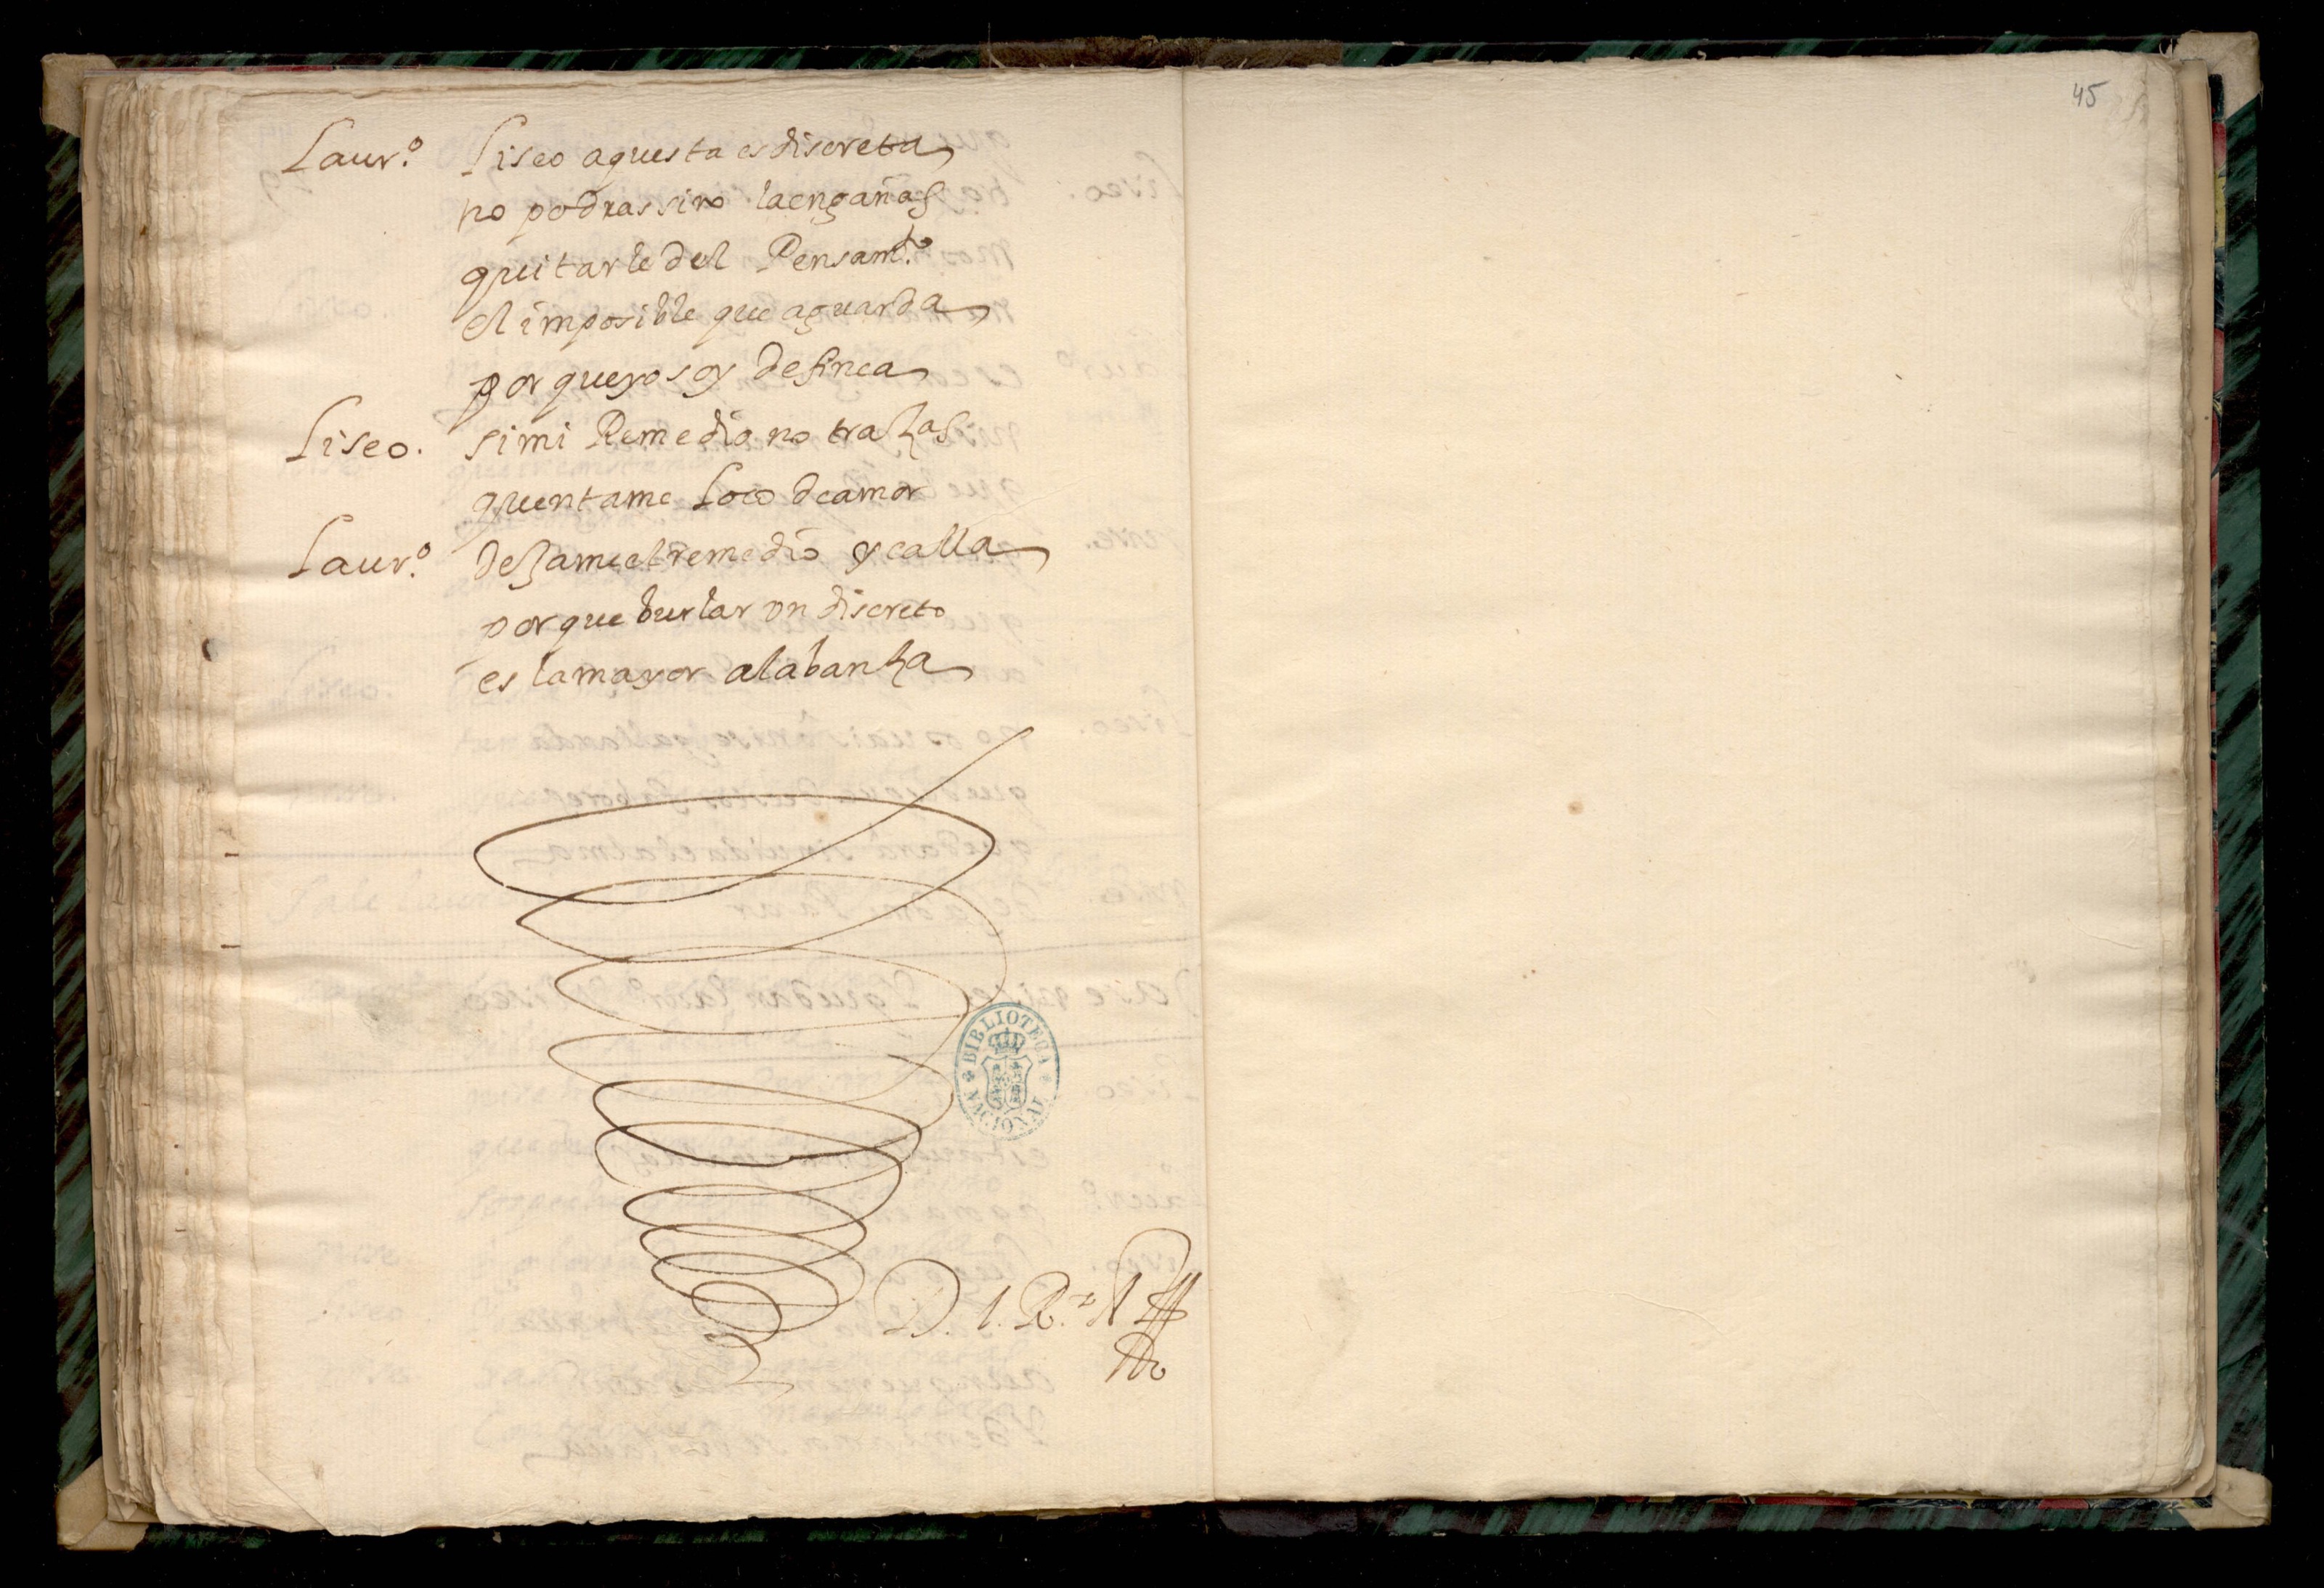 45
Laur.º Liseo aquesta es discreta
no podras sino la engañas
quitarle del Pensamto.
el imposible que aguarda
por que yo soy de finea
Liseo. si mi Remedio no trazas
quentame Loco de amor
Laur.º dejame el remedio y calla
por que burlar vn discreto
es la mayor alabanza
BIBLIOTECA NACIONAL